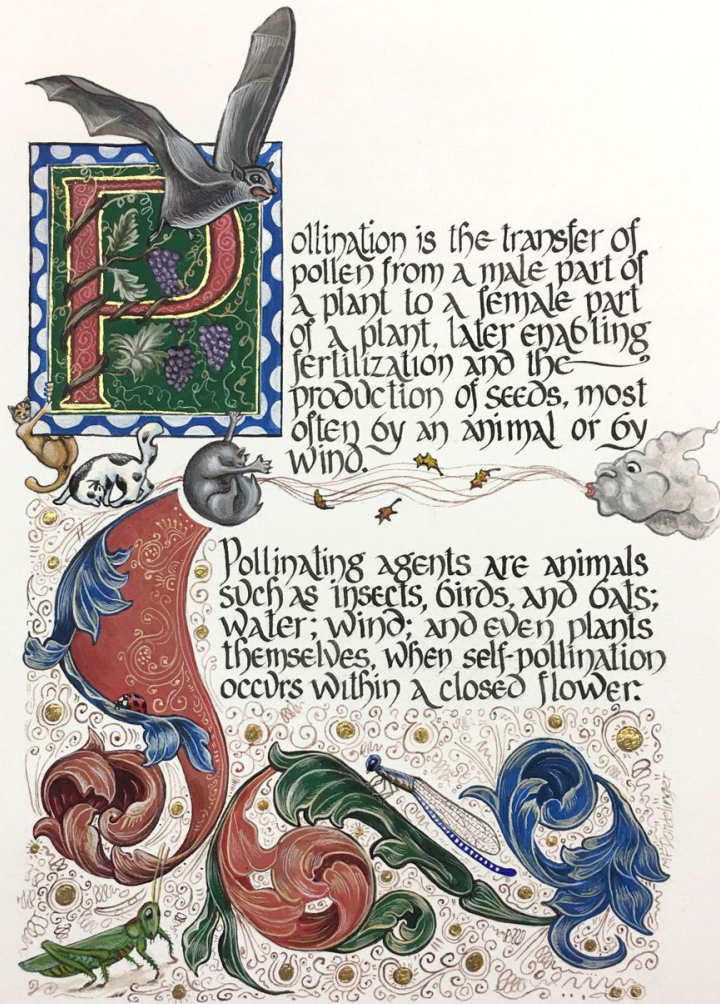 Pollination is the transfer of
pollen from a male part of
a plant to a female part
of a plant, later enabling
fertilization and the
production of seeds, most
often by an animal or by
wind.
Pollinating agents are animals
such as insects, birds, and bats;
water; wind; and even plants
themselves, when self-pollination
occurs within a closed flower.